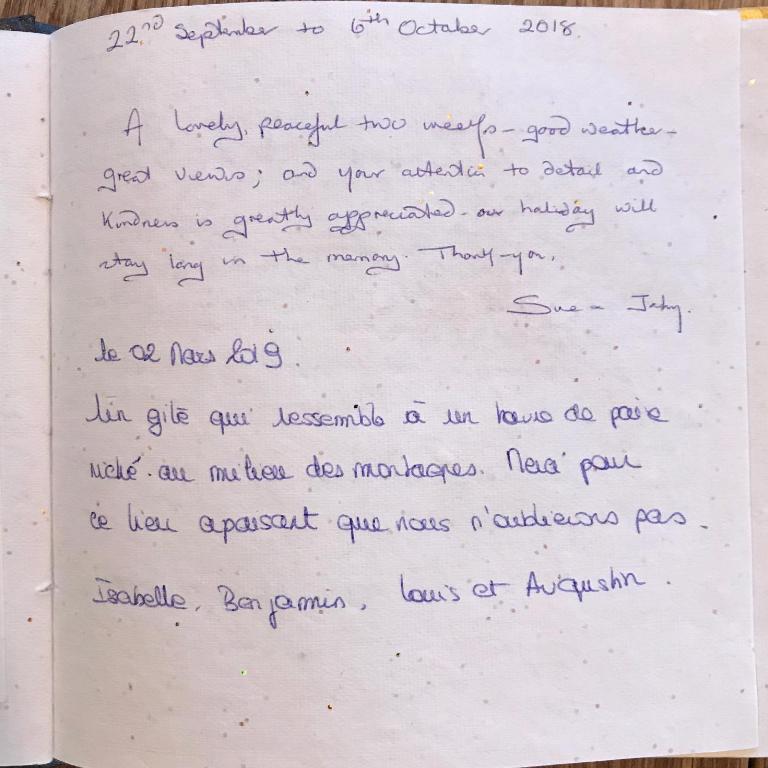 22nd September to 6th October 2018.
A lovely, peaceful two weeks - good weather -
great views; and your attention to detail and
kindness is greatly appreciated - our holiday will
stay long in the memory. Thank-you.
Sue
le 02 Mars 2019.
Un gîte qui ressemble à un havre de paix
niché au milieu des montagnes. Merci pour
ce lieu apaisant que nous n'oublierons pas.
Isabelle, Benjamin, Louis et Augustin.